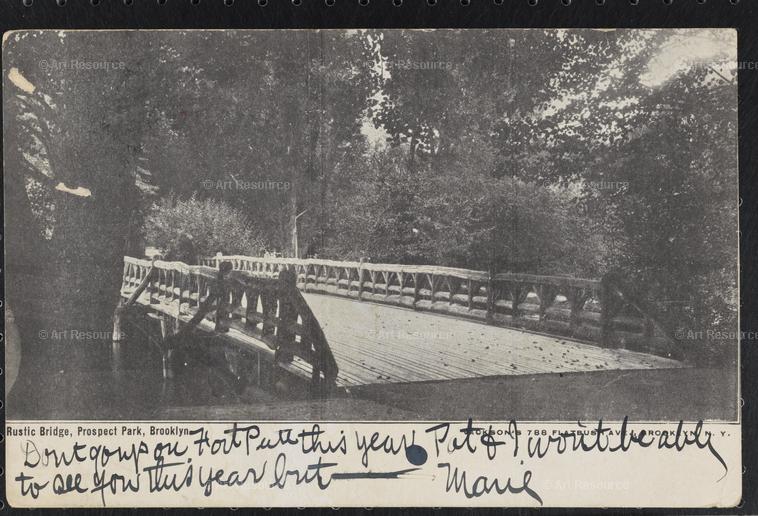 © Art Resource © Art Resource © Art Resource
© Art Resource © Art Resource
© Art Resource © Art Resource © Art Resource
Rustic Bridge, Prospect Park, Brooklyn
788 FLATBUSH AVE. BROOKLYN, N. Y.
Dont go up on Fort Putt this year Pat & I won't be able
to see you this year but — Marie
© Art Resource